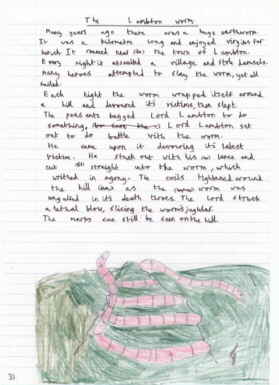 The Lambton worm
Many years ago there was a huge earthworm
It was a kilometre long and enjoyed virgins for
lunch It roamed near the town of Lambton.
Every night it assaulted a village and stole damsels.
Many heroes attempted to slay the worm, yet all
failed.
Each night the worm wrapped itself around
a hill and devoured its victims, then slept.
The peasants begged Lord Lambton to do
something, Lord Lambton set
out to do battle with the worm.
He came upon it devouring its latest
victim. He struck out with his lance and
cut straight into the worm, which
writhed in agony. The coils tightened around
the hill as the worm was
engulfed in its death throes. The Lord struck
a lethal blow, slicing the worms jugular.
The marks can still be seen on the hill.